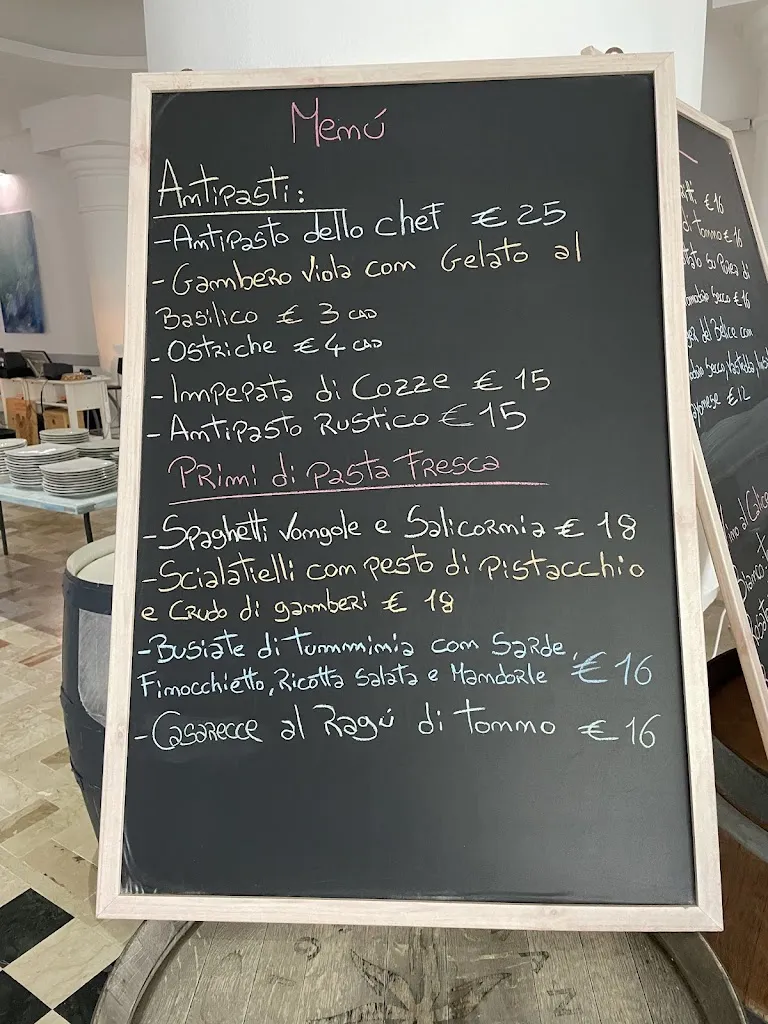 Menú
Antipasti:
- Antipasto dello chef € 25
- Gambero viola con Gelato al
Basilico € 3 CAD
- Ostriche € 4 CAD
- Impepata di Cozze € 15
- Antipasto Rustico € 15
Primi di Pasta Fresca
- Spaghetti Vongole e Salicornia € 18
- Scialatielli con pesto di pistacchio
e crudo di gamberi € 18
- Busiate di Tummminia con Sarde,
Finocchietto, Ricotta Salata e Mandorle € 16
- Casarecce al Ragú di tonno € 16
€ 16
di tonno € 16
su Purea di
secco € 16
del Belice con
secco,
€ 12
al Calice
Bianco